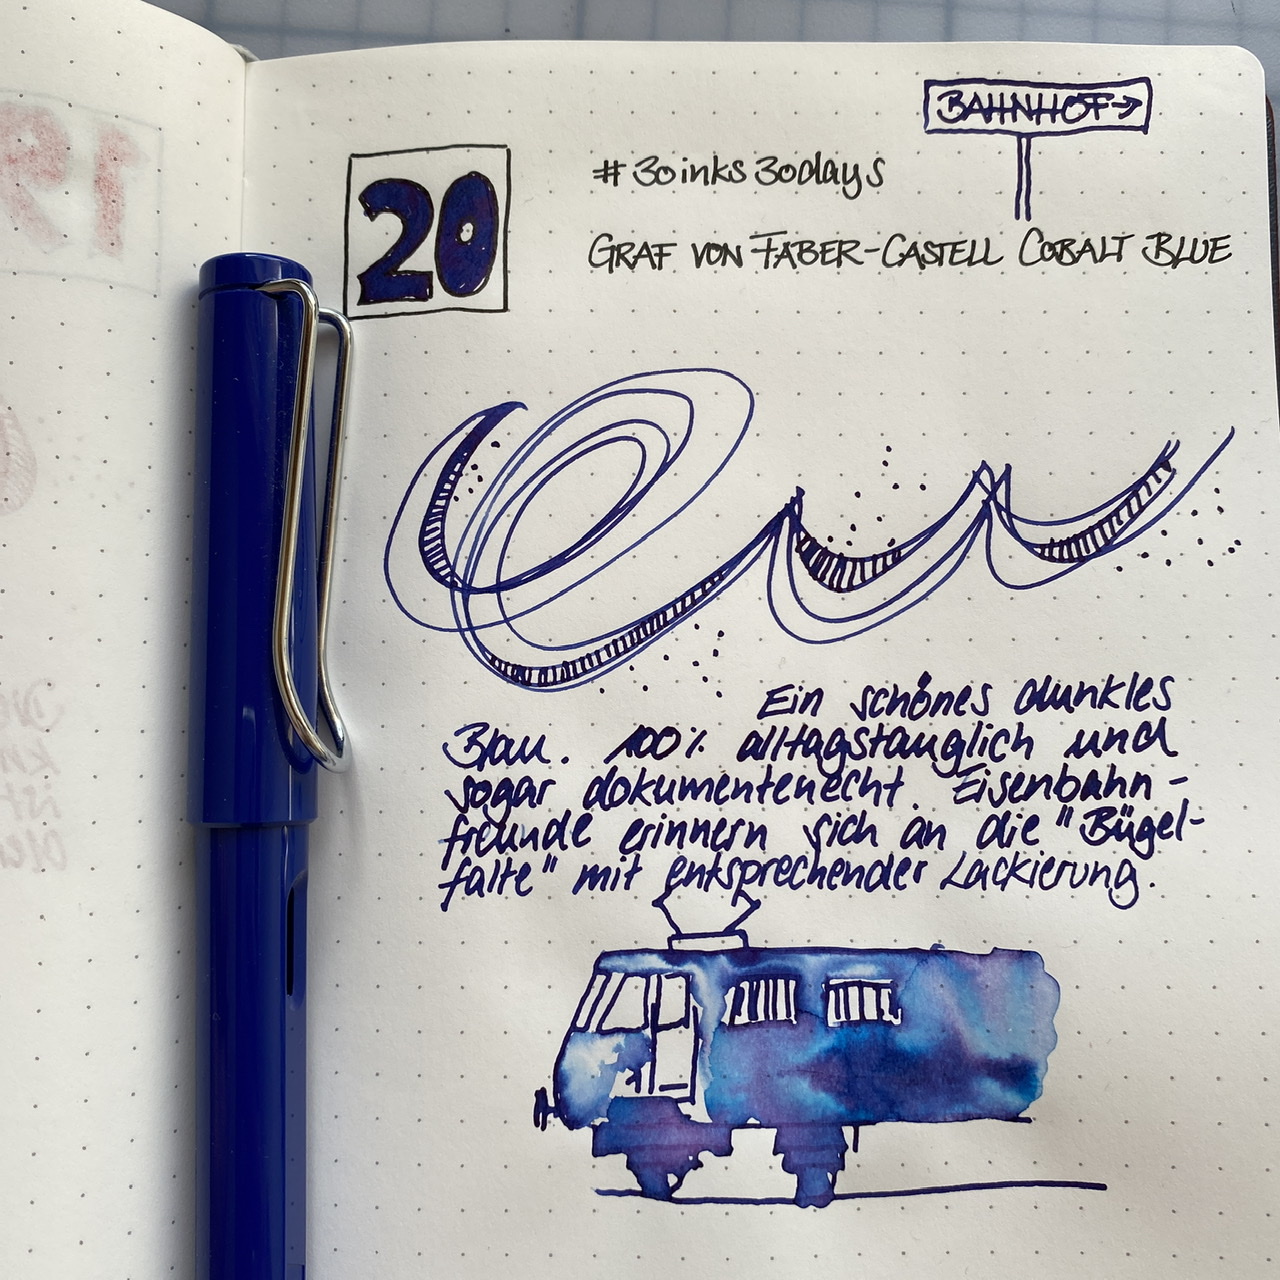 BAHNHOF→
20
#30inks30days
GRAF VON FABER-CASTELL COBALT BLUE
Ein schönes dunkles
Blau. 100% alltagstauglich und
sogar dokumentenecht. Eisenbahn-
freunde erinnern sich an die "Bügel-
falte" mit entsprechender Lackierung.
19